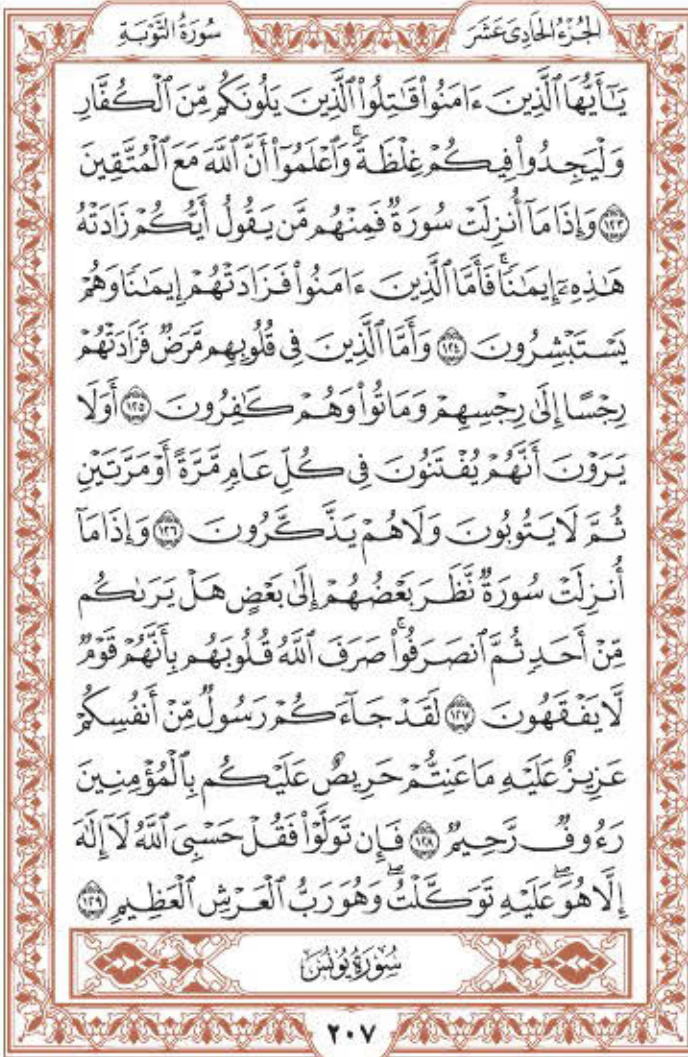 سُورَةُ التَّوْبَةِ
الجُزْءُ الحَادِيَ عَشَرَ
يَـٰٓأَيُّهَا ٱلَّذِينَ ءَامَنُواْ قَـٰتِلُواْ ٱلَّذِينَ يَلُونَكُم مِّنَ ٱلْكُفَّارِ
وَلْيَجِدُواْ فِيكُمْ غِلْظَةً ۚ وَٱعْلَمُوٓاْ أَنَّ ٱللَّهَ مَعَ ٱلْمُتَّقِينَ
١٢٣ وَإِذَا مَآ أُنزِلَتْ سُورَةٌ فَمِنْهُم مَّن يَقُولُ أَيُّكُمْ زَادَتْهُ
هَـٰذِهِۦٓ إِيمَـٰنًا ۚ فَأَمَّا ٱلَّذِينَ ءَامَنُواْ فَزَادَتْهُمْ إِيمَـٰنًا وَهُمْ
يَسْتَبْشِرُونَ ١٢٤ وَأَمَّا ٱلَّذِينَ فِى قُلُوبِهِم مَّرَضٌ فَزَادَتْهُمْ
رِجْسًا إِلَىٰ رِجْسِهِمْ وَمَاتُواْ وَهُمْ كَـٰفِرُونَ ١٢٥ أَوَلَا
يَرَوْنَ أَنَّهُمْ يُفْتَنُونَ فِى كُلِّ عَامٍ مَّرَّةً أَوْ مَرَّتَيْنِ
ثُمَّ لَا يَتُوبُونَ وَلَا هُمْ يَذَّكَّرُونَ ١٢٦ وَإِذَا مَآ
أُنزِلَتْ سُورَةٌ نَّظَرَ بَعْضُهُمْ إِلَىٰ بَعْضٍ هَلْ يَرَىٰكُم
مِّنْ أَحَدٍ ثُمَّ ٱنصَرَفُواْ ۚ صَرَفَ ٱللَّهُ قُلُوبَهُم بِأَنَّهُمْ قَوْمٌ
لَّا يَفْقَهُونَ ١٢٧ لَقَدْ جَآءَكُمْ رَسُولٌ مِّنْ أَنفُسِكُمْ
عَزِيزٌ عَلَيْهِ مَا عَنِتُّمْ حَرِيصٌ عَلَيْكُم بِٱلْمُؤْمِنِينَ
رَءُوفٌ رَّحِيمٌ ١٢٨ فَإِن تَوَلَّوْاْ فَقُلْ حَسْبِىَ ٱللَّهُ لَآ إِلَـٰهَ
إِلَّا هُوَ ۖ عَلَيْهِ تَوَكَّلْتُ ۖ وَهُوَ رَبُّ ٱلْعَرْشِ ٱلْعَظِيمِ ١٢٩
سُورَةُ يُونُسَ
٢٠٧